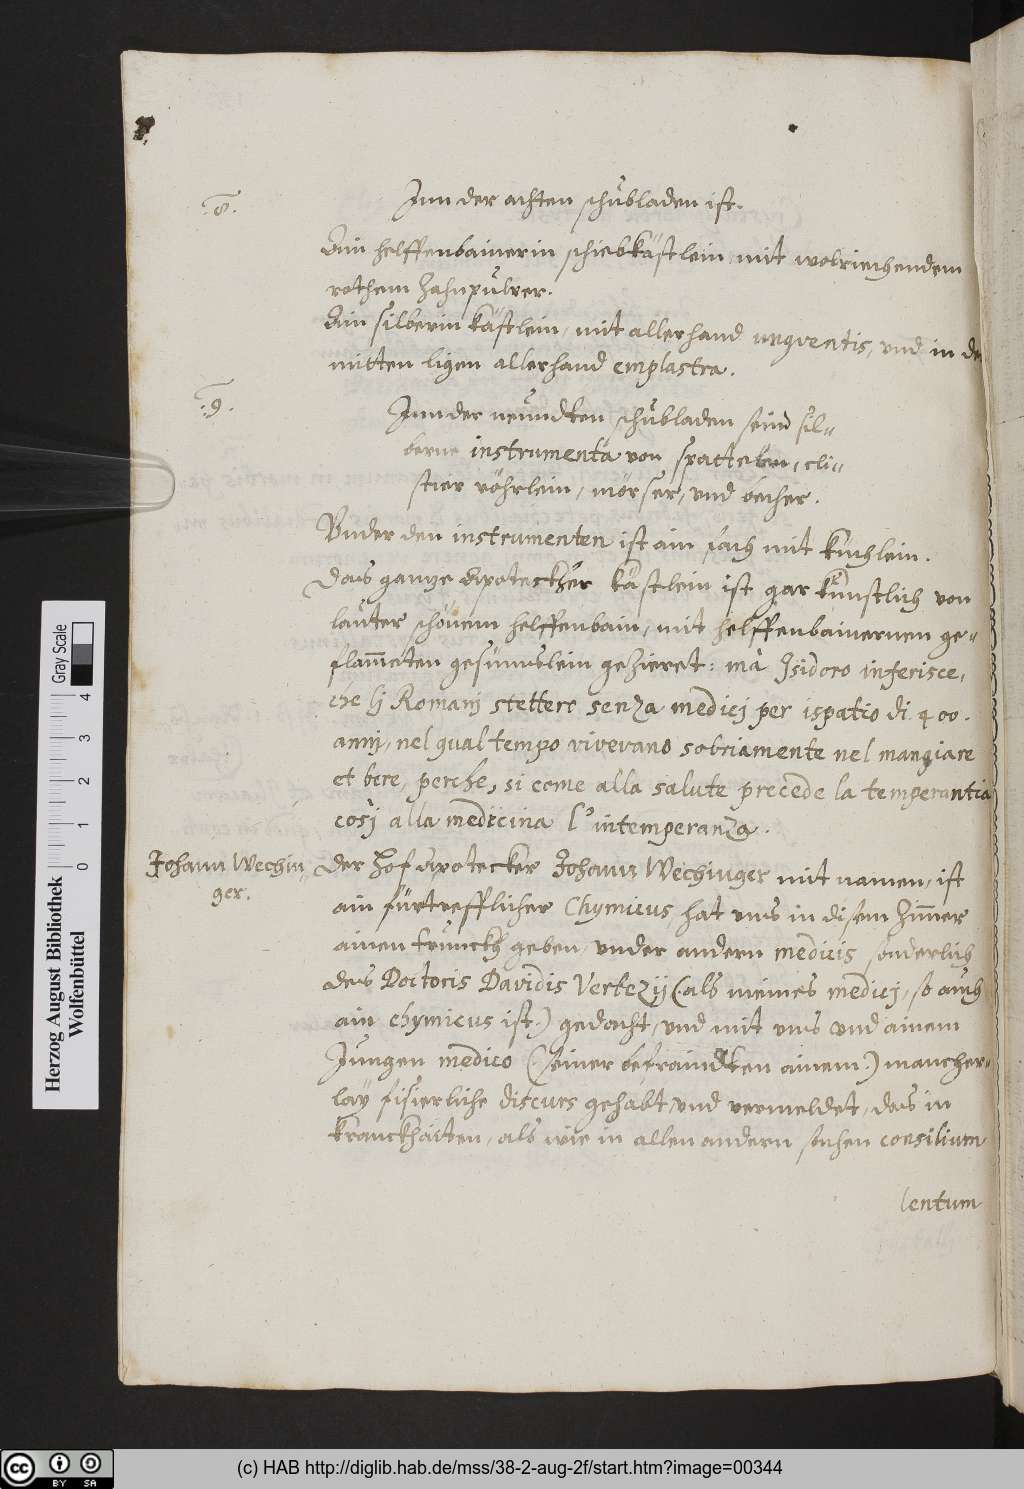 .8.
Inn der achten schubladen ist.
Ain helffenbainerin schiebkästlein mit wolriechendem
rothem Zahnpulver.
Ain silberin kästlein, mit allerhand ungventis, und in der
mitten ligen allerhand emplastra.
.9.
Inn der neundten schubladen seind sil-
berne instrumenta von spattelen, cli-
stier röhrlein, mörser, und becher.
Under den instrumenten ist ain fach mit küchlein.
Das gantze Apoteckher kästlein ist gar kunstlich von
lauter schönem helffenbain, mit helffenbainernen ge-
flam̄eten gesimbslein gezieret: mà Isidoro inferisce,
che lj Romanj stettero senza medicj per ispatio di 400.
annj, nel qual tempo vivevano sobriamente nel mangiare
et bere, perche, si come alla salute precede la temperantia
cosj alla medicina l'intemperanza.
Johann Wechin-
ger.
Der Hof Apotecker Johann Wechinger mit namen, ist
ain fürtrefflicher Chymicus, hat uns in disem Zim̄er
ainen trunckh geben, under andern medicis sonderlich
des Doctoris Davidis Verbezij (als meines medicj, so auch
ain chymicus ist.) gedacht, und mit uns und ainem
Jungen medico (seiner befraindten ainem.) mancher-
lay fisierliche discurs gehabt, und vermeldet, das in
kranckhaiten, als wie in allen andern sachen consilium
lentum
Herzog August Bibliothek
Wolfenbüttel
0 1 2 3 4
Gray Scale
cc BY SA
(c) HAB http://diglib.hab.de/mss/38-2-aug-2f/start.htm?image=00344